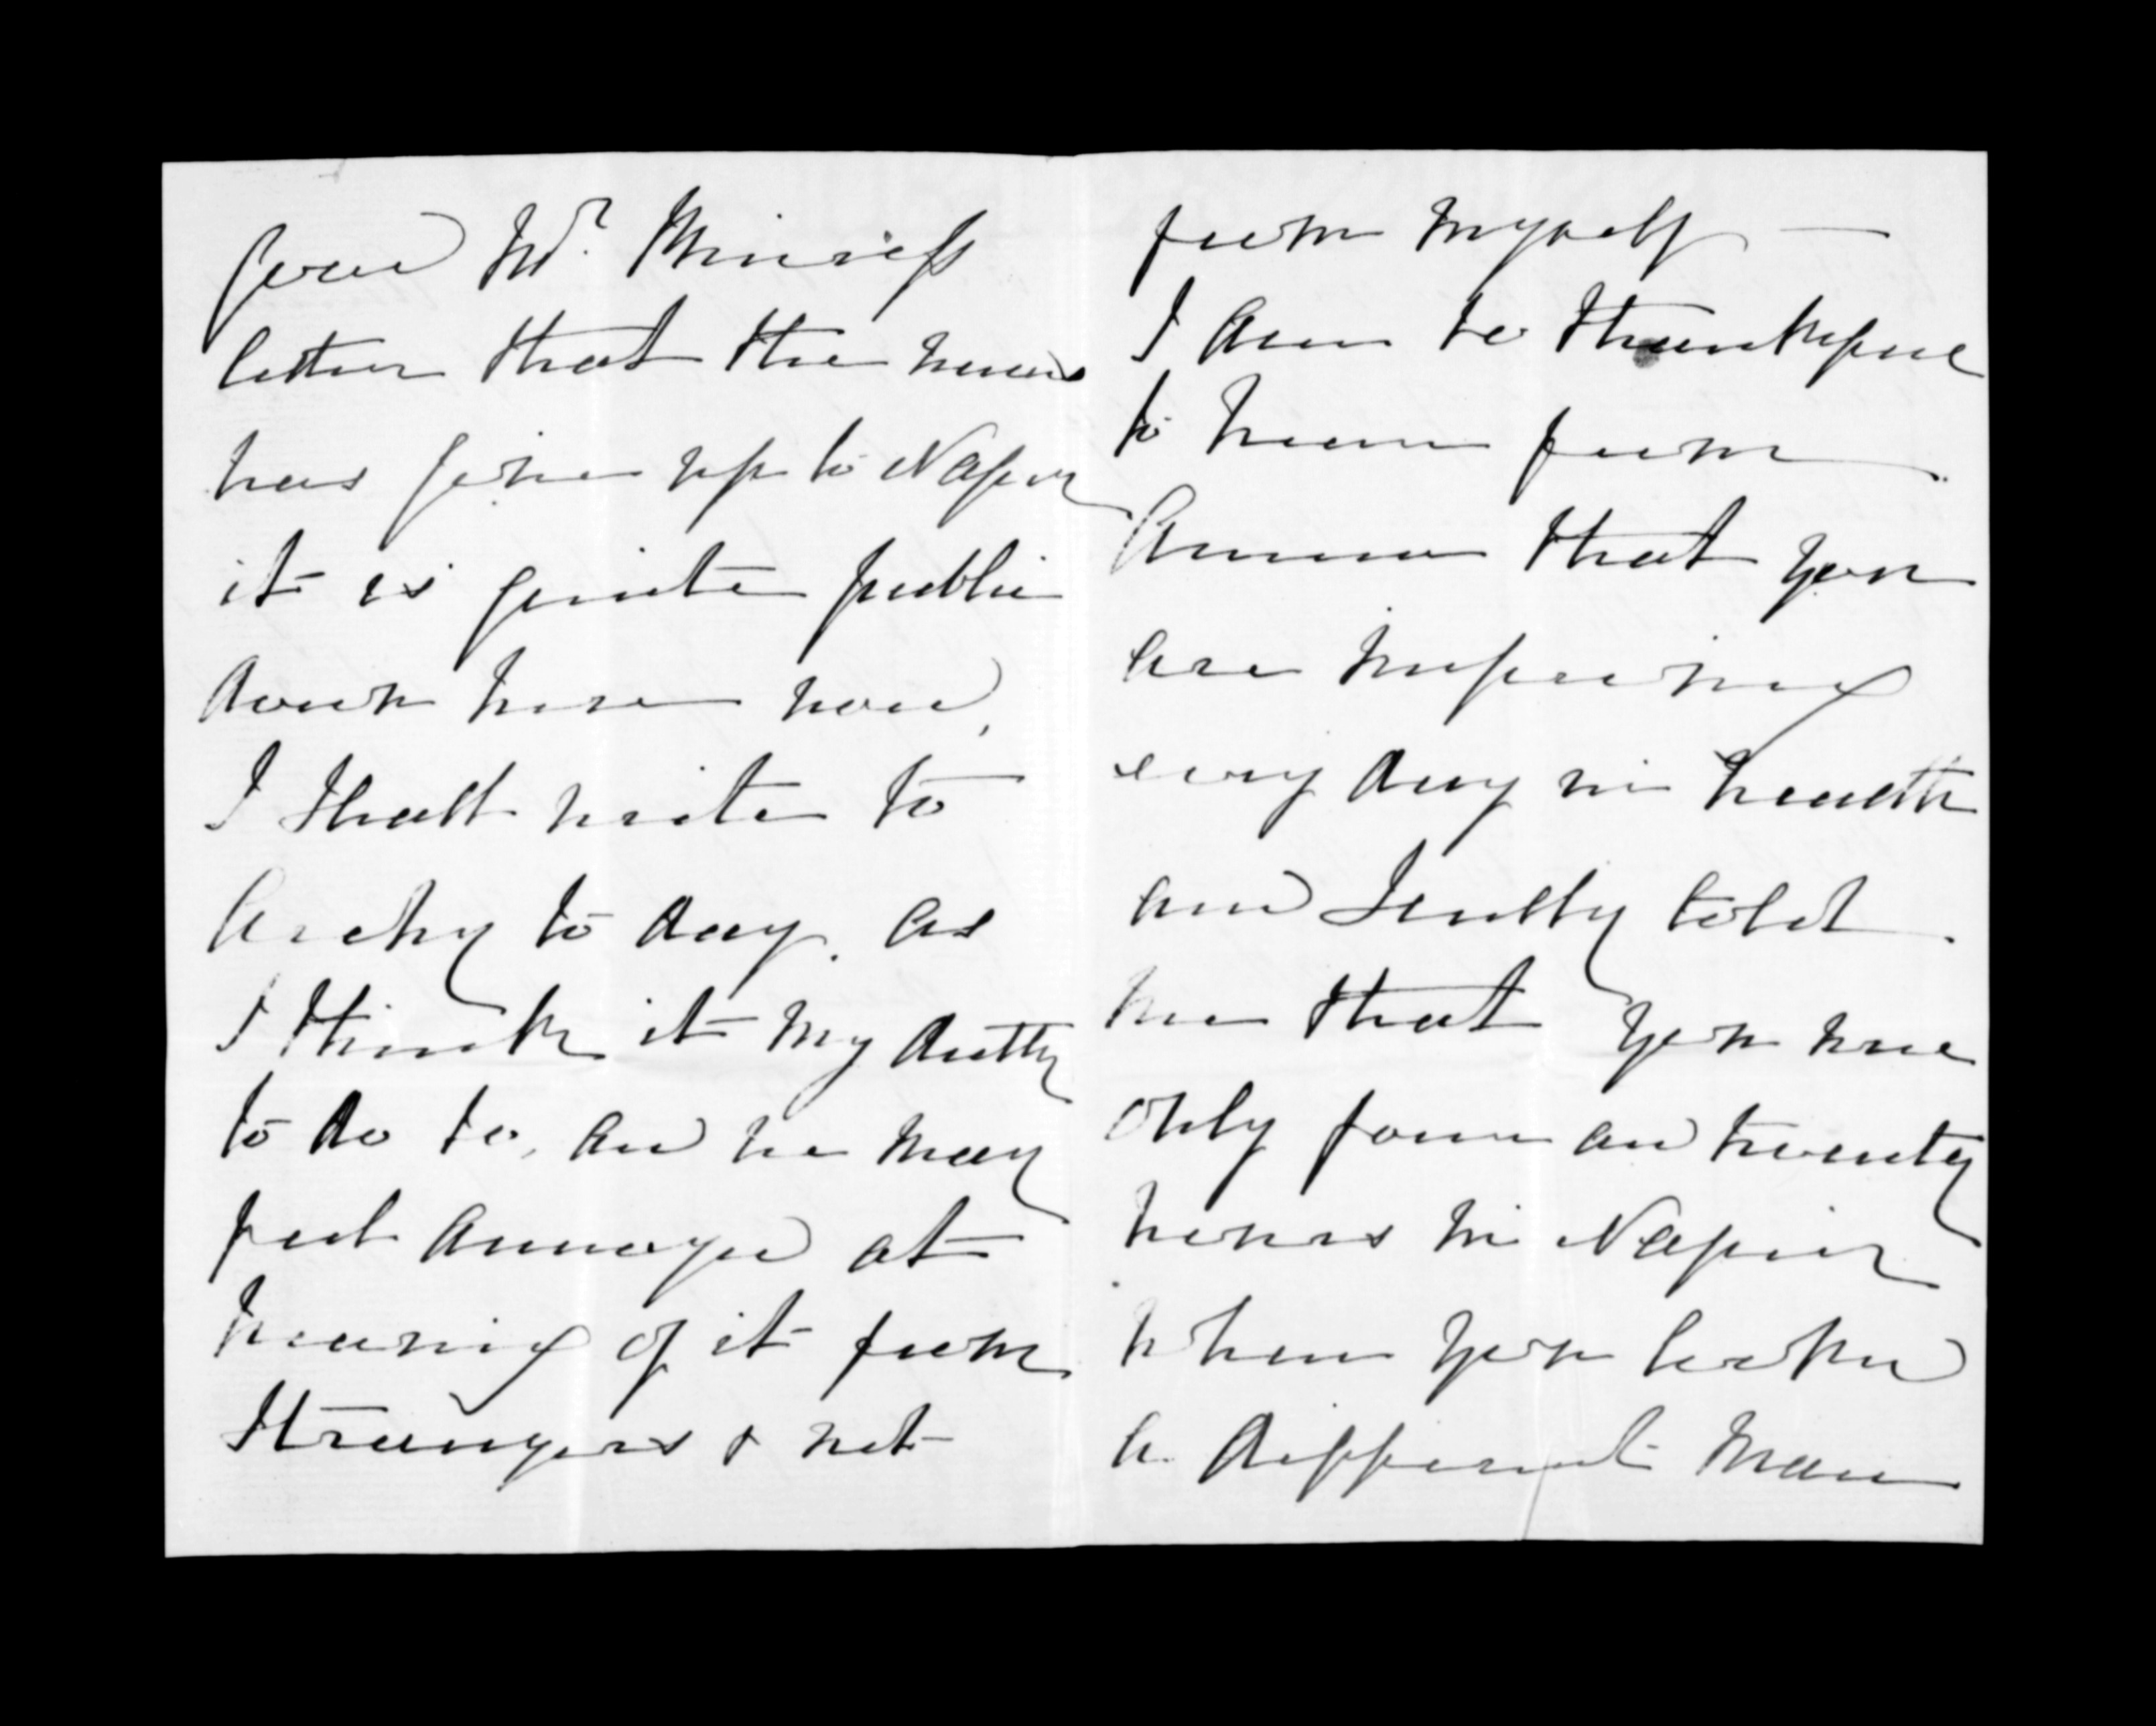 good Mr.
letter that the news
has gone up to Napier
it is quite public
down here now,
I shall write to
Archy to day. as
I think it my dutty
to do so, and he may
feel annoyed at
hearing of it from
Strangers & not
from myself —
I am so thankful
to hear from
Emma that you
are improving
every day in health
and Scully told
me that you were
only four and twenty
hours in Napier
when you looked
a different man